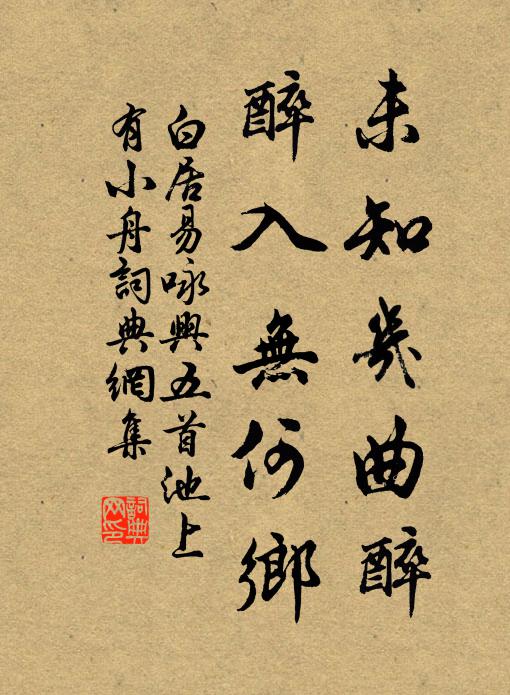 未知幾曲醉
醉入無何鄉
白居易咏興五首池上
有小舟詞典網集
詞典
网印